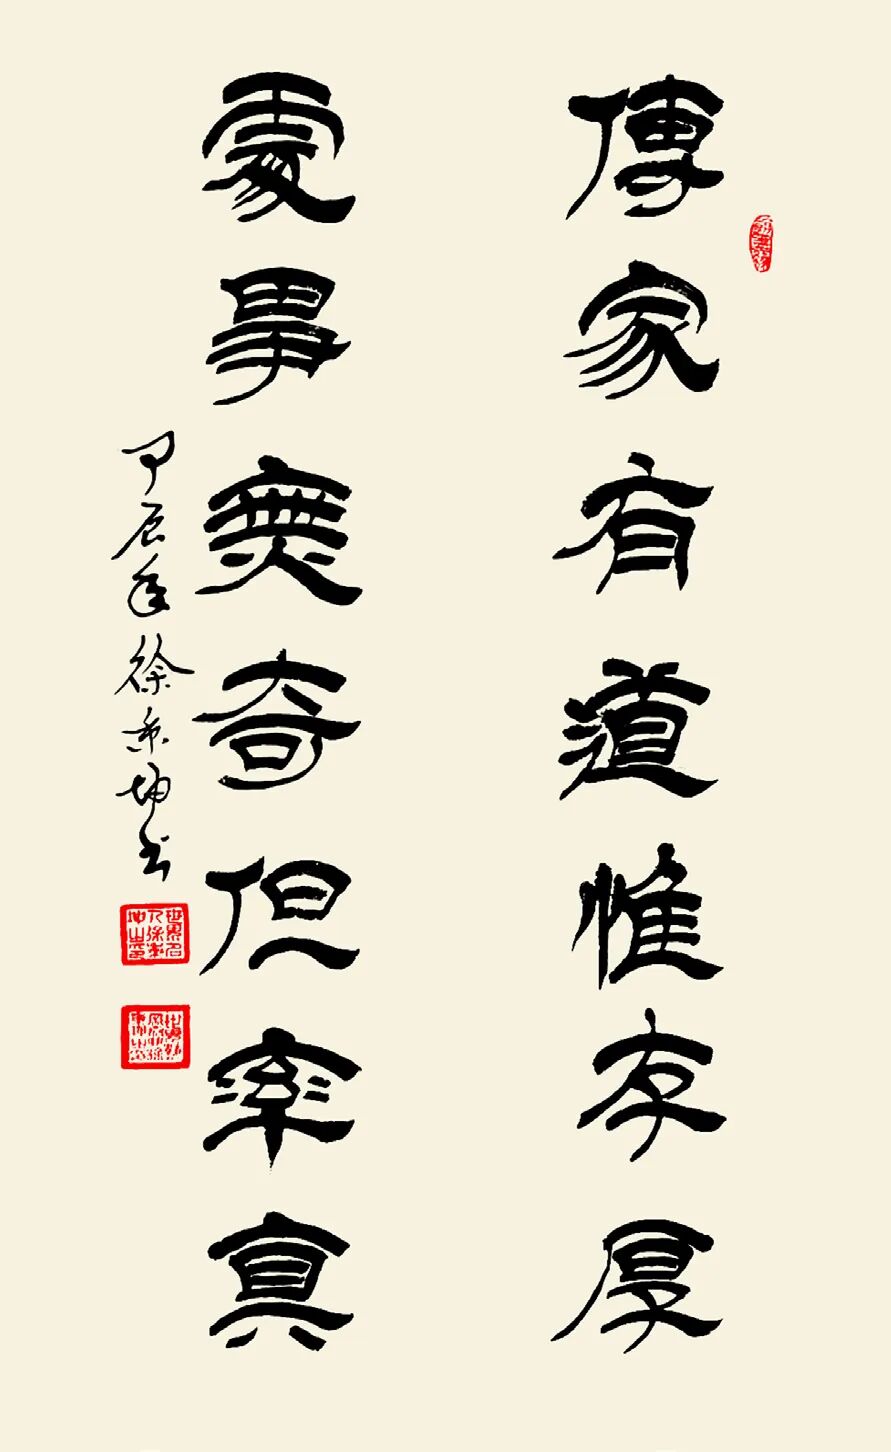 傳家有道惟存厚
處事無奇但率真
甲辰年徐東坤书